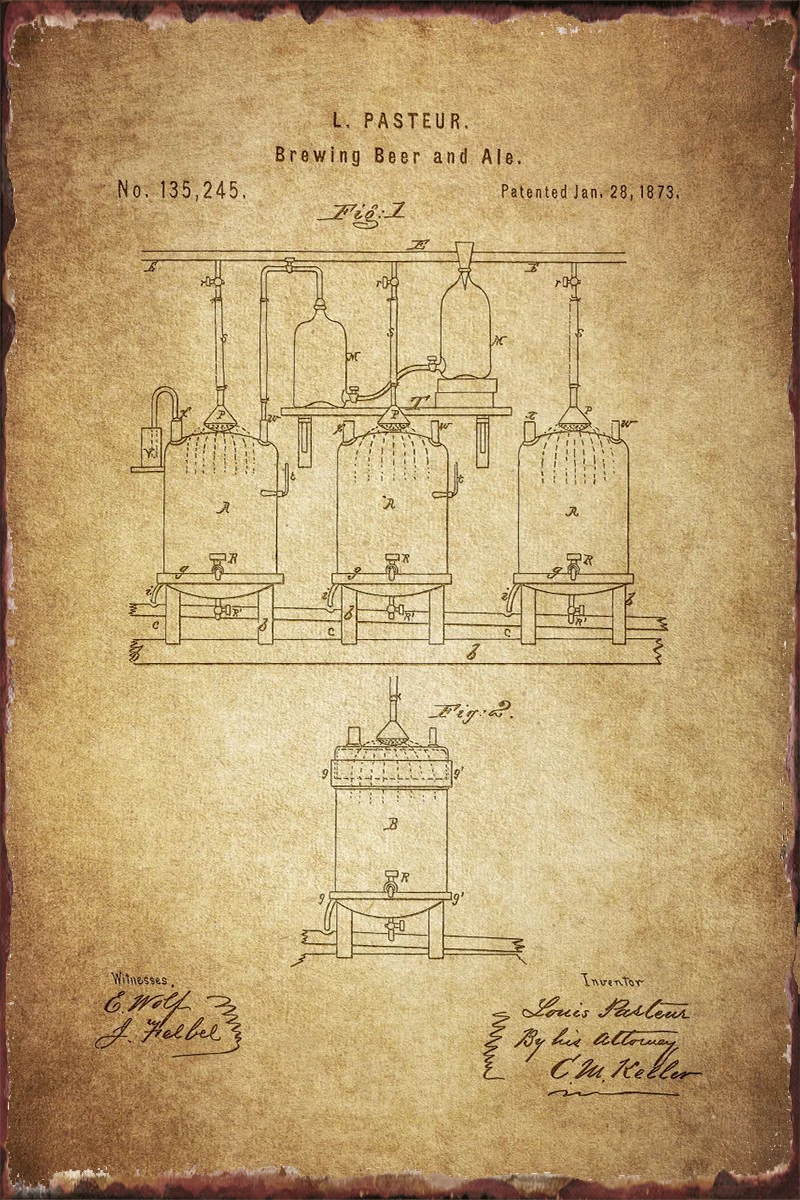 L. PASTEUR.
Brewing Beer and Ale.
No. 135,245.
Patented Jan. 28, 1873.
Fig: 1
E
E
E
r
r
r
s
s
s
M
M
T
P
P
P
w
w
w
V
t
t
A
A
A
R
R
R
g
g
g
i
i
i
R'
R'
R'
c
c
c
b
b
b
b
b
Fig: 2.
g
g'
B
R
g
g'
Witnesses,
E. Wolf
J. Felbel
Inventor
Louis Pasteur
By his Attorney
C. M. Keller